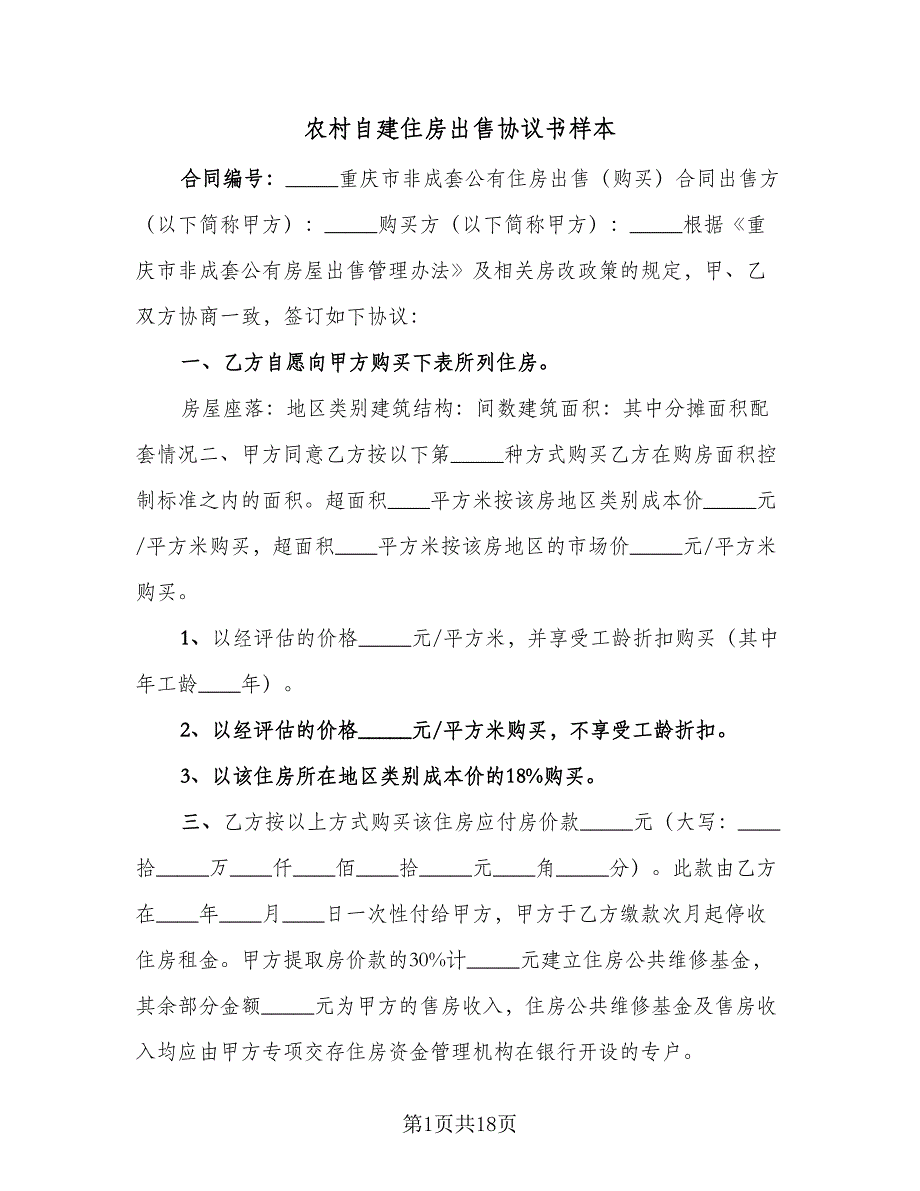 农村自建住房出售协议书样本
合同编号：_____重庆市非成套公有住房出售（购买）合同出售方
（以下简称甲方）：_____购买方（以下简称甲方）：_____根据《重
庆市非成套公有房屋出售管理办法》及相关房改政策的规定，甲、乙
双方协商一致，签订如下协议：
一、乙方自愿向甲方购买下表所列住房。
房屋座落：地区类别建筑结构：间数建筑面积：其中分摊面积配
套情况二、甲方同意乙方按以下第_____种方式购买乙方在购房面积控
制标准之内的面积。超面积____平方米按该房地区类别成本价_____元
/平方米购买，超面积____平方米按该房地区的市场价_____元/平方米
购买。
1、以经评估的价格_____元/平方米，并享受工龄折扣购买（其中
年工龄____年）。
2、以经评估的价格_____元/平方米购买，不享受工龄折扣。
3、以该住房所在地区类别成本价的18%购买。
三、乙方按以上方式购买该住房应付房价款_____元（大写：____
拾_____万____仟____佰____拾____元____角_____分）。此款由乙方
在____年____月____日一次性付给甲方，甲方于乙方缴款次月起停收
住房租金。甲方提取房价款的30%计_____元建立住房公共维修基金，
其余部分金额_____元为甲方的售房收入，住房公共维修基金及售房收
入均应由甲方专项交存住房资金管理机构在银行开设的专户。
第1页共18页